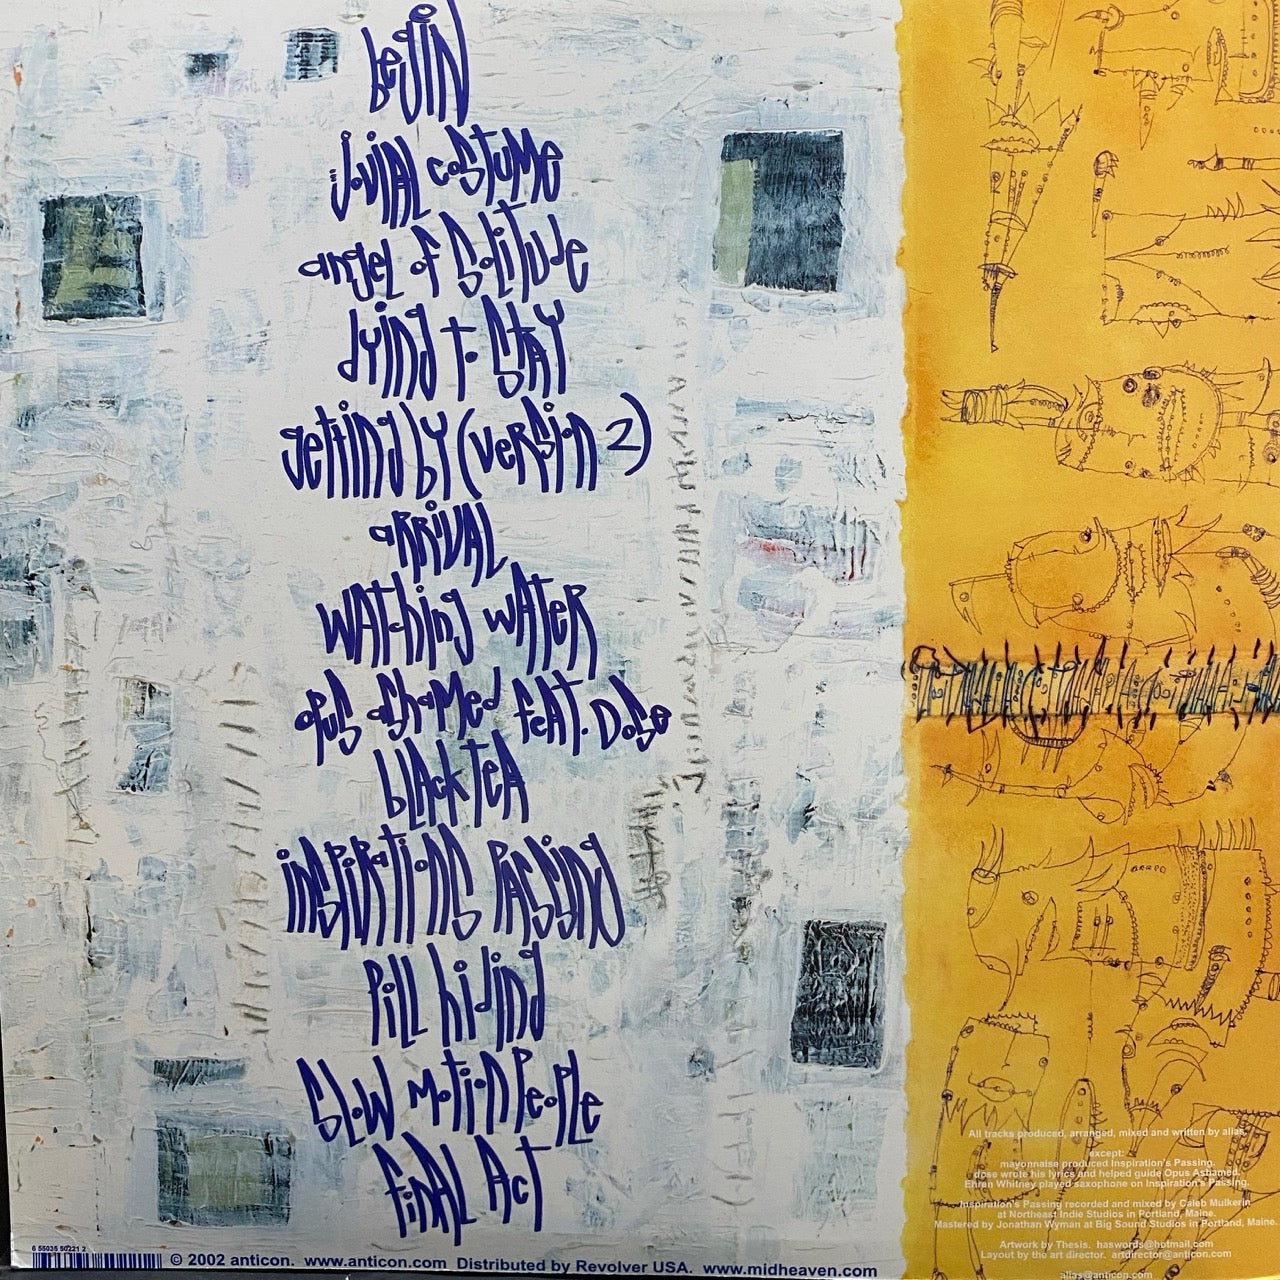 begin
jovial costume
angel of solitude
dying to stay
getting by (version 2)
arrival
watching water
opus ashamed feat. Dose
black tea
inspirations passing
pill hiding
slow motion people
final act
All tracks produced, arranged, mixed and written by alias.
except:
mayonnaise produced Inspiration's Passing.
dose wrote his lyrics and helped guide Opus Ashamed.
Ehren Whitney played saxophone on Inspiration's Passing.
Inspiration's Passing recorded and mixed by Caleb Mulkerin
at Northeast Indie Studios in Portland, Maine.
Mastered by Jonathan Wyman at Big Sound Studios in Portland, Maine.
Artwork by Thesis. haswords@hotmail.com
Layout by the art director. artdirector@anticon.com
alias@anticon.com
6 55035 50221 2
© 2002 anticon. www.anticon.com Distributed by Revolver USA. www.midheaven.com